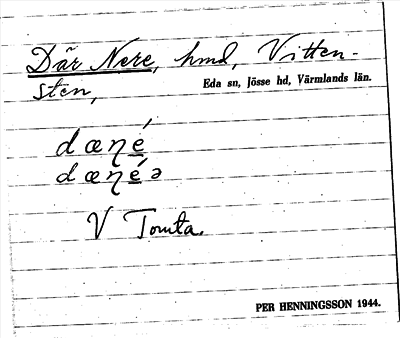 Där Nere, hmd, Vitten-
sten,
Eda sn, Jösse hd, Värmlands län.
dæɳé
dæɳéə
V Tomta.
PER HENNINGSSON 1944.